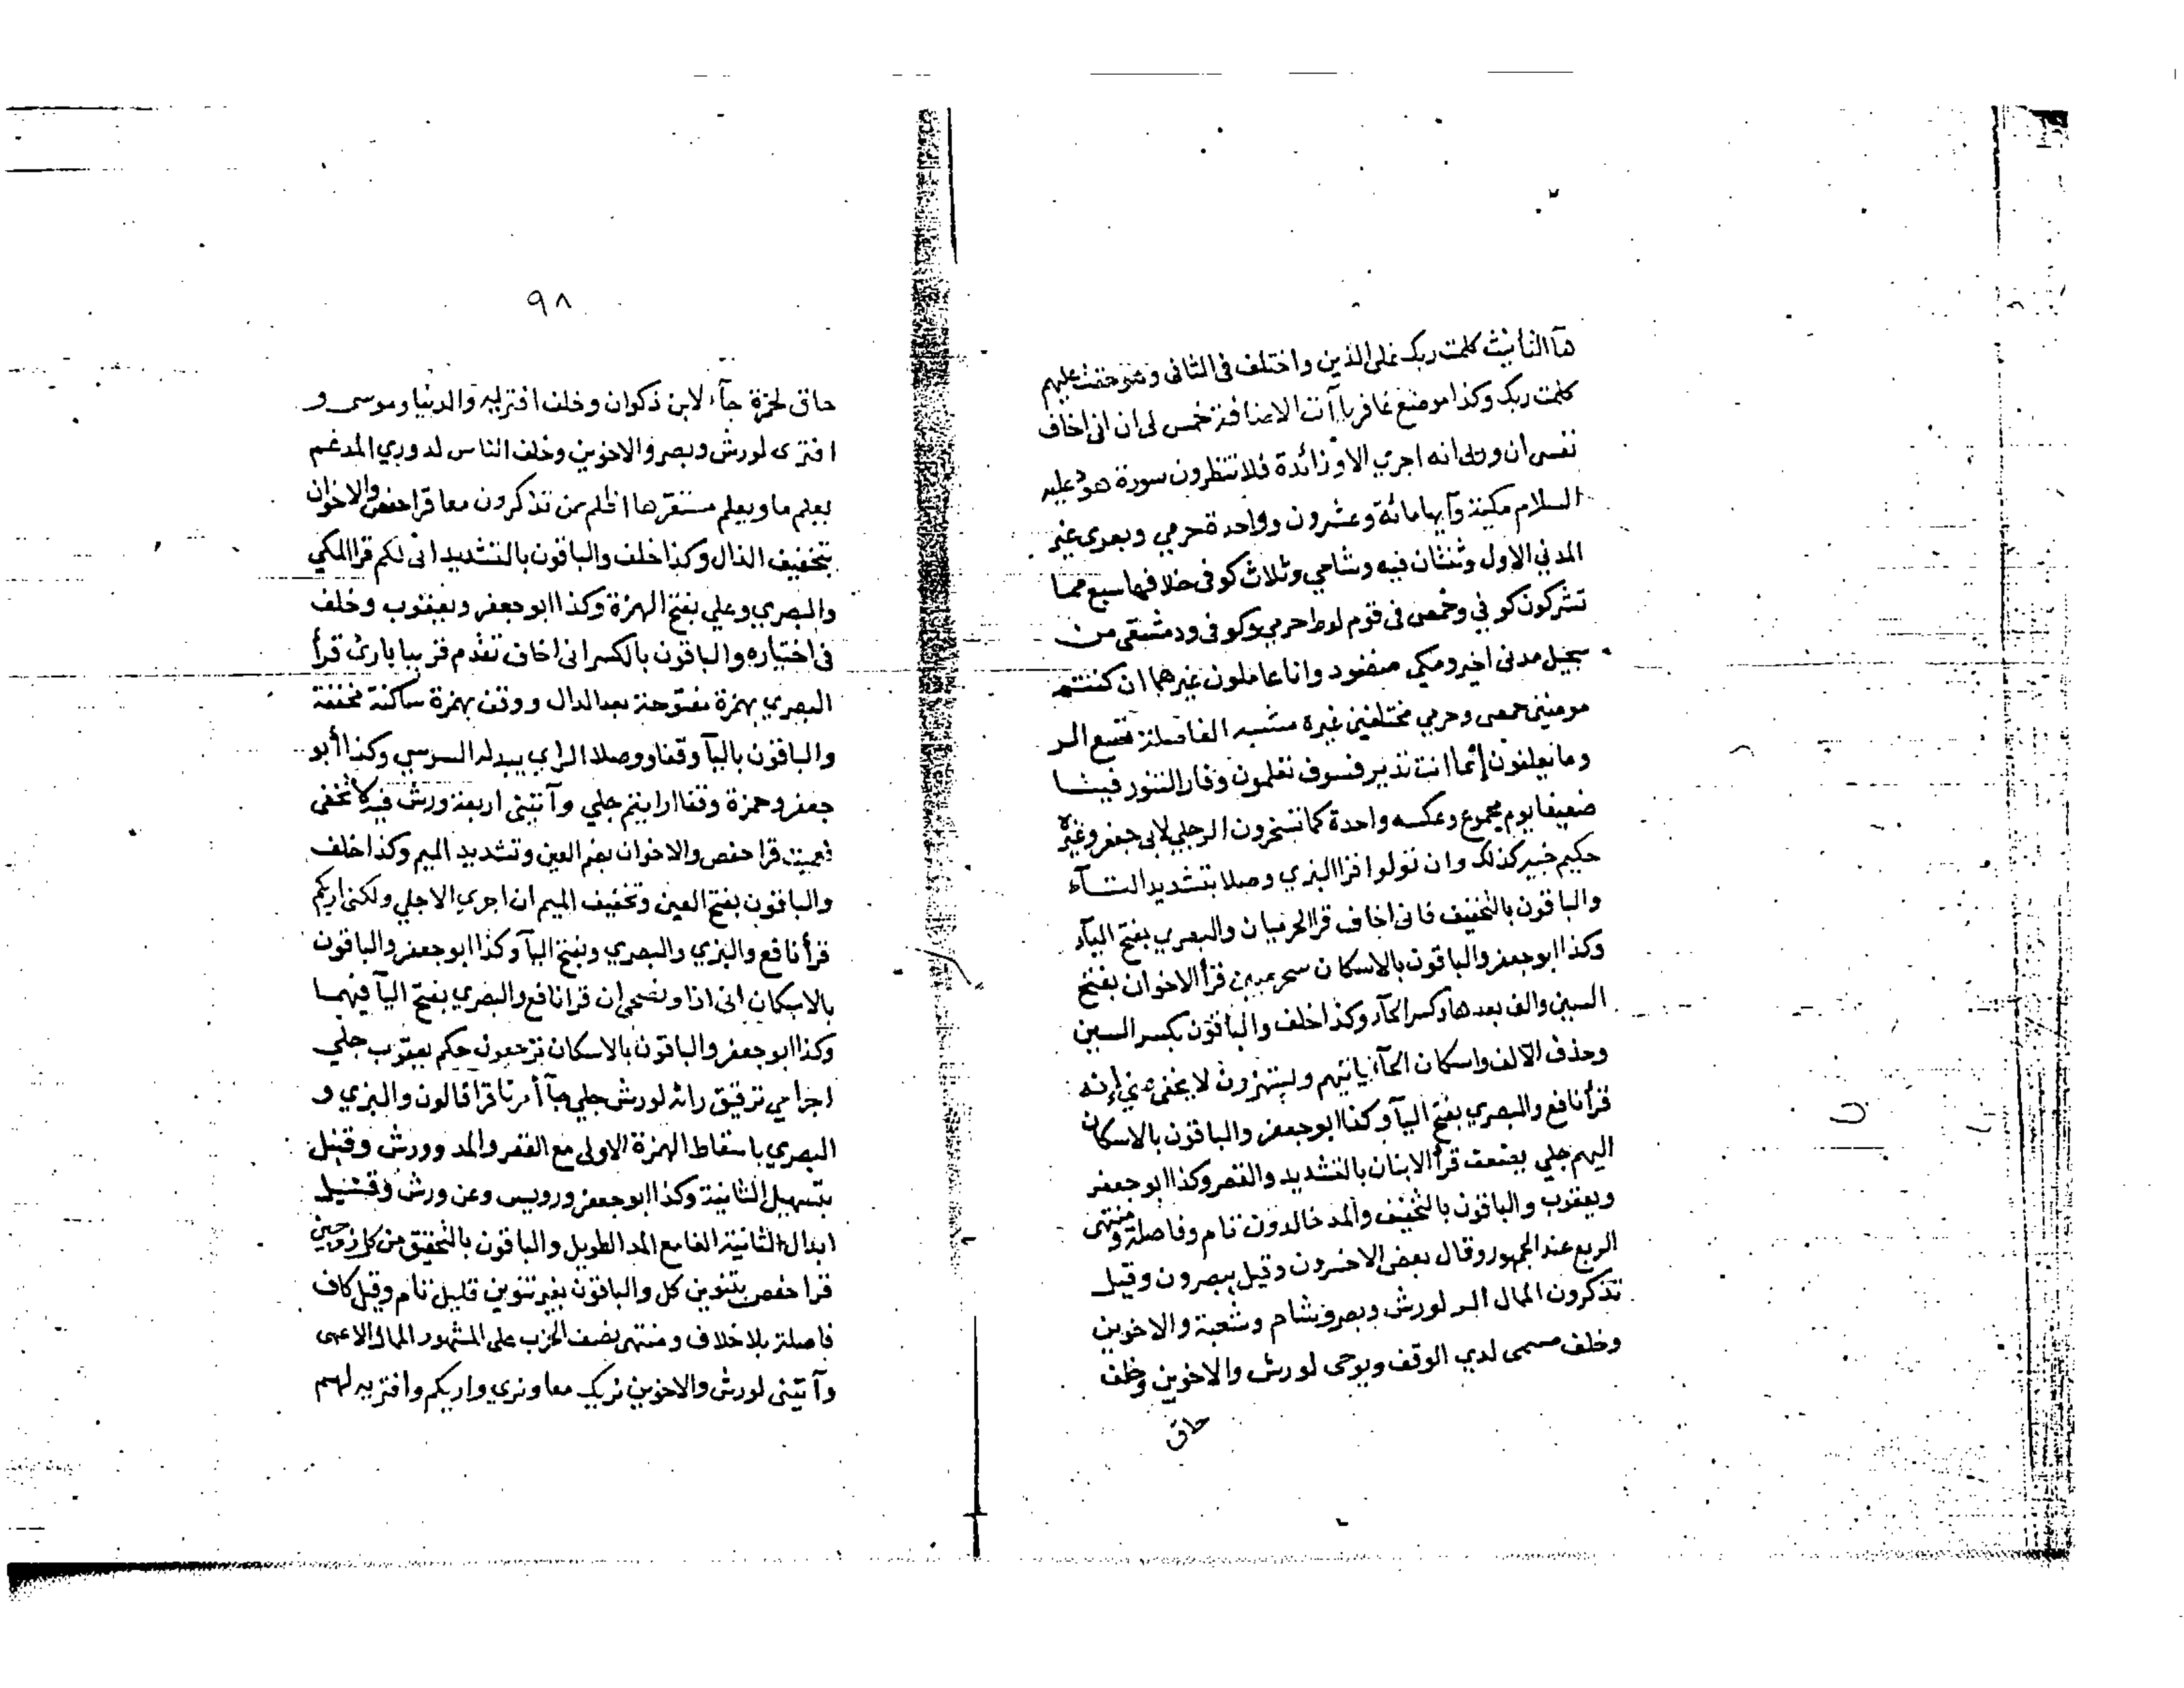 هآ التأنيث كلمت ربك على الذين واختلف فى الثانى وهو حقت عليهم
كلمت ربك وكذا موضع غافر ياآت الاضافة خمس لى ان انى اخاف
نفسى ان وربى انه اجري الا وزائدة فلا تنظرون سورة هود عليه
السلام مكية وآيها مائة وعشرون وواحدة حرمي وبصرى غير
المدني الاول وثنتان فيه وشامي وثلاث كوفى خلافها سبع مما
تشركون كوفي وحمصى فى قوم لوط حرمي وكوفى ودمشقى من
سجيل مدنى اخير ومكي منضود وانا عاملون غيرهما ان كنتم
مومنين حمصى وحرمي مختلفين غيره مشبه الفاصلة تسع الر
وما يعلنون إنما انت نذير فسوف تعلمون وفار التنور فينا
ضعيفا يوم مجموع وعكسه واحدة كما تسخرون الر جلي لابى جعفر وغيره
حكيم خبير كذلك وان تولوا قرا البزي وصلا بتشديد التآء
والباقون بالتخفيف فانى اخاف قرا الحرميان والبصري بفتح اليآء
وكذا ابو جعفر والباقون بالاسكان سحر مبين قرأ الاخوان بفتح
السين والف بعدها وكسر الحآء وكذا خلف والباقون بكسر السين
وحذف الالف واسكان الحآء ياتيهم ويستهزون لا يخفى عني إنه
قرأ نافع والبصري بفتح اليآ وكذا ابو جعفر والباقون بالاسكان
اليهم جلي يضعف قرأ الابنان بالتشديد والقصر وكذا ابو جعفر
ويعقوب والباقون بالتخفيف والمد خالدون تام وفاصلة ومنتهى
الربع عند الجمهور وقال بعض الاخسرون وقيل يبصرون وقيل
تذكرون الممال الر لورش وبصر وشام وشعبة والاخوين
وخلف مسمى لدي الوقف ويوحى لورش والاخوين وخلف
حاق
٩٨
حاق لحمزة جآء لابن ذكوان وخلف افتريه والدنيا وموسى و
افترى لورش وبصر والاخوين وخلف الناس لدوري المدغم
يعلم ما ويعلم مستقرها اظلم ممن تذكرون معا قرا حفص والاخوان
بتخفيف الذال وكذا خلف والباقون بالتشديد انى لكم قرا المكي
والبصري وعلي بفتح الهمزة وكذا ابو جعفر ويعقوب وخلف
فى اختياره والباقون بالكسر انى اخاف تقدم قريبا بادئ قرأ
البصري بهمزة مفتوحة بعد الدال ووقف بهمزة ساكنة مخففة
والباقون باليآ وقفا ووصلا الراي يبدله السوسي وكذا أبو
جعفر وحمزة وقفا ارايتم جلي وآتينى اربعة ورش فيه لا تخفى
فعميت قرا حفص والاخوان بضم العين وتشديد الميم وكذا خلف
والباقون بفتح العين وتخفيف الميم ان اجري الا جلي ولكنى اريكم
قرأ نافع والبزي والبصري وبفتح اليآ وكذا ابو جعفر والباقون
بالاسكان انى اذا ونصحى ان قرا نافع والبصري بفتح اليآ فيهما
وكذا ابو جعفر والباقون بالاسكان ترجعون حكم يعقوب جلي
اجرامي ترقيق رائه لورش جلي جآ أمرنا قرا قالون والبزي و
البصري باسقاط الهمزة الاولى مع القصر والمد وورش وقنبل
بتسهيل الثانية وكذا ابو جعفر ورويس وعن ورش وقنبل
ابدال الثانية الفا مع المد الطويل والباقون بالتحقيق من كل زوجين
قرا حفص بتنوين كل والباقون بغير تنوين قليل تام وقيل كاف
فاصلة بلا خلاف ومنتهى نصف الحزب على المشهور الممال الاعمى
وآتينى لورش والاخوين نريك معا ونري واريكم وافتريه لهم